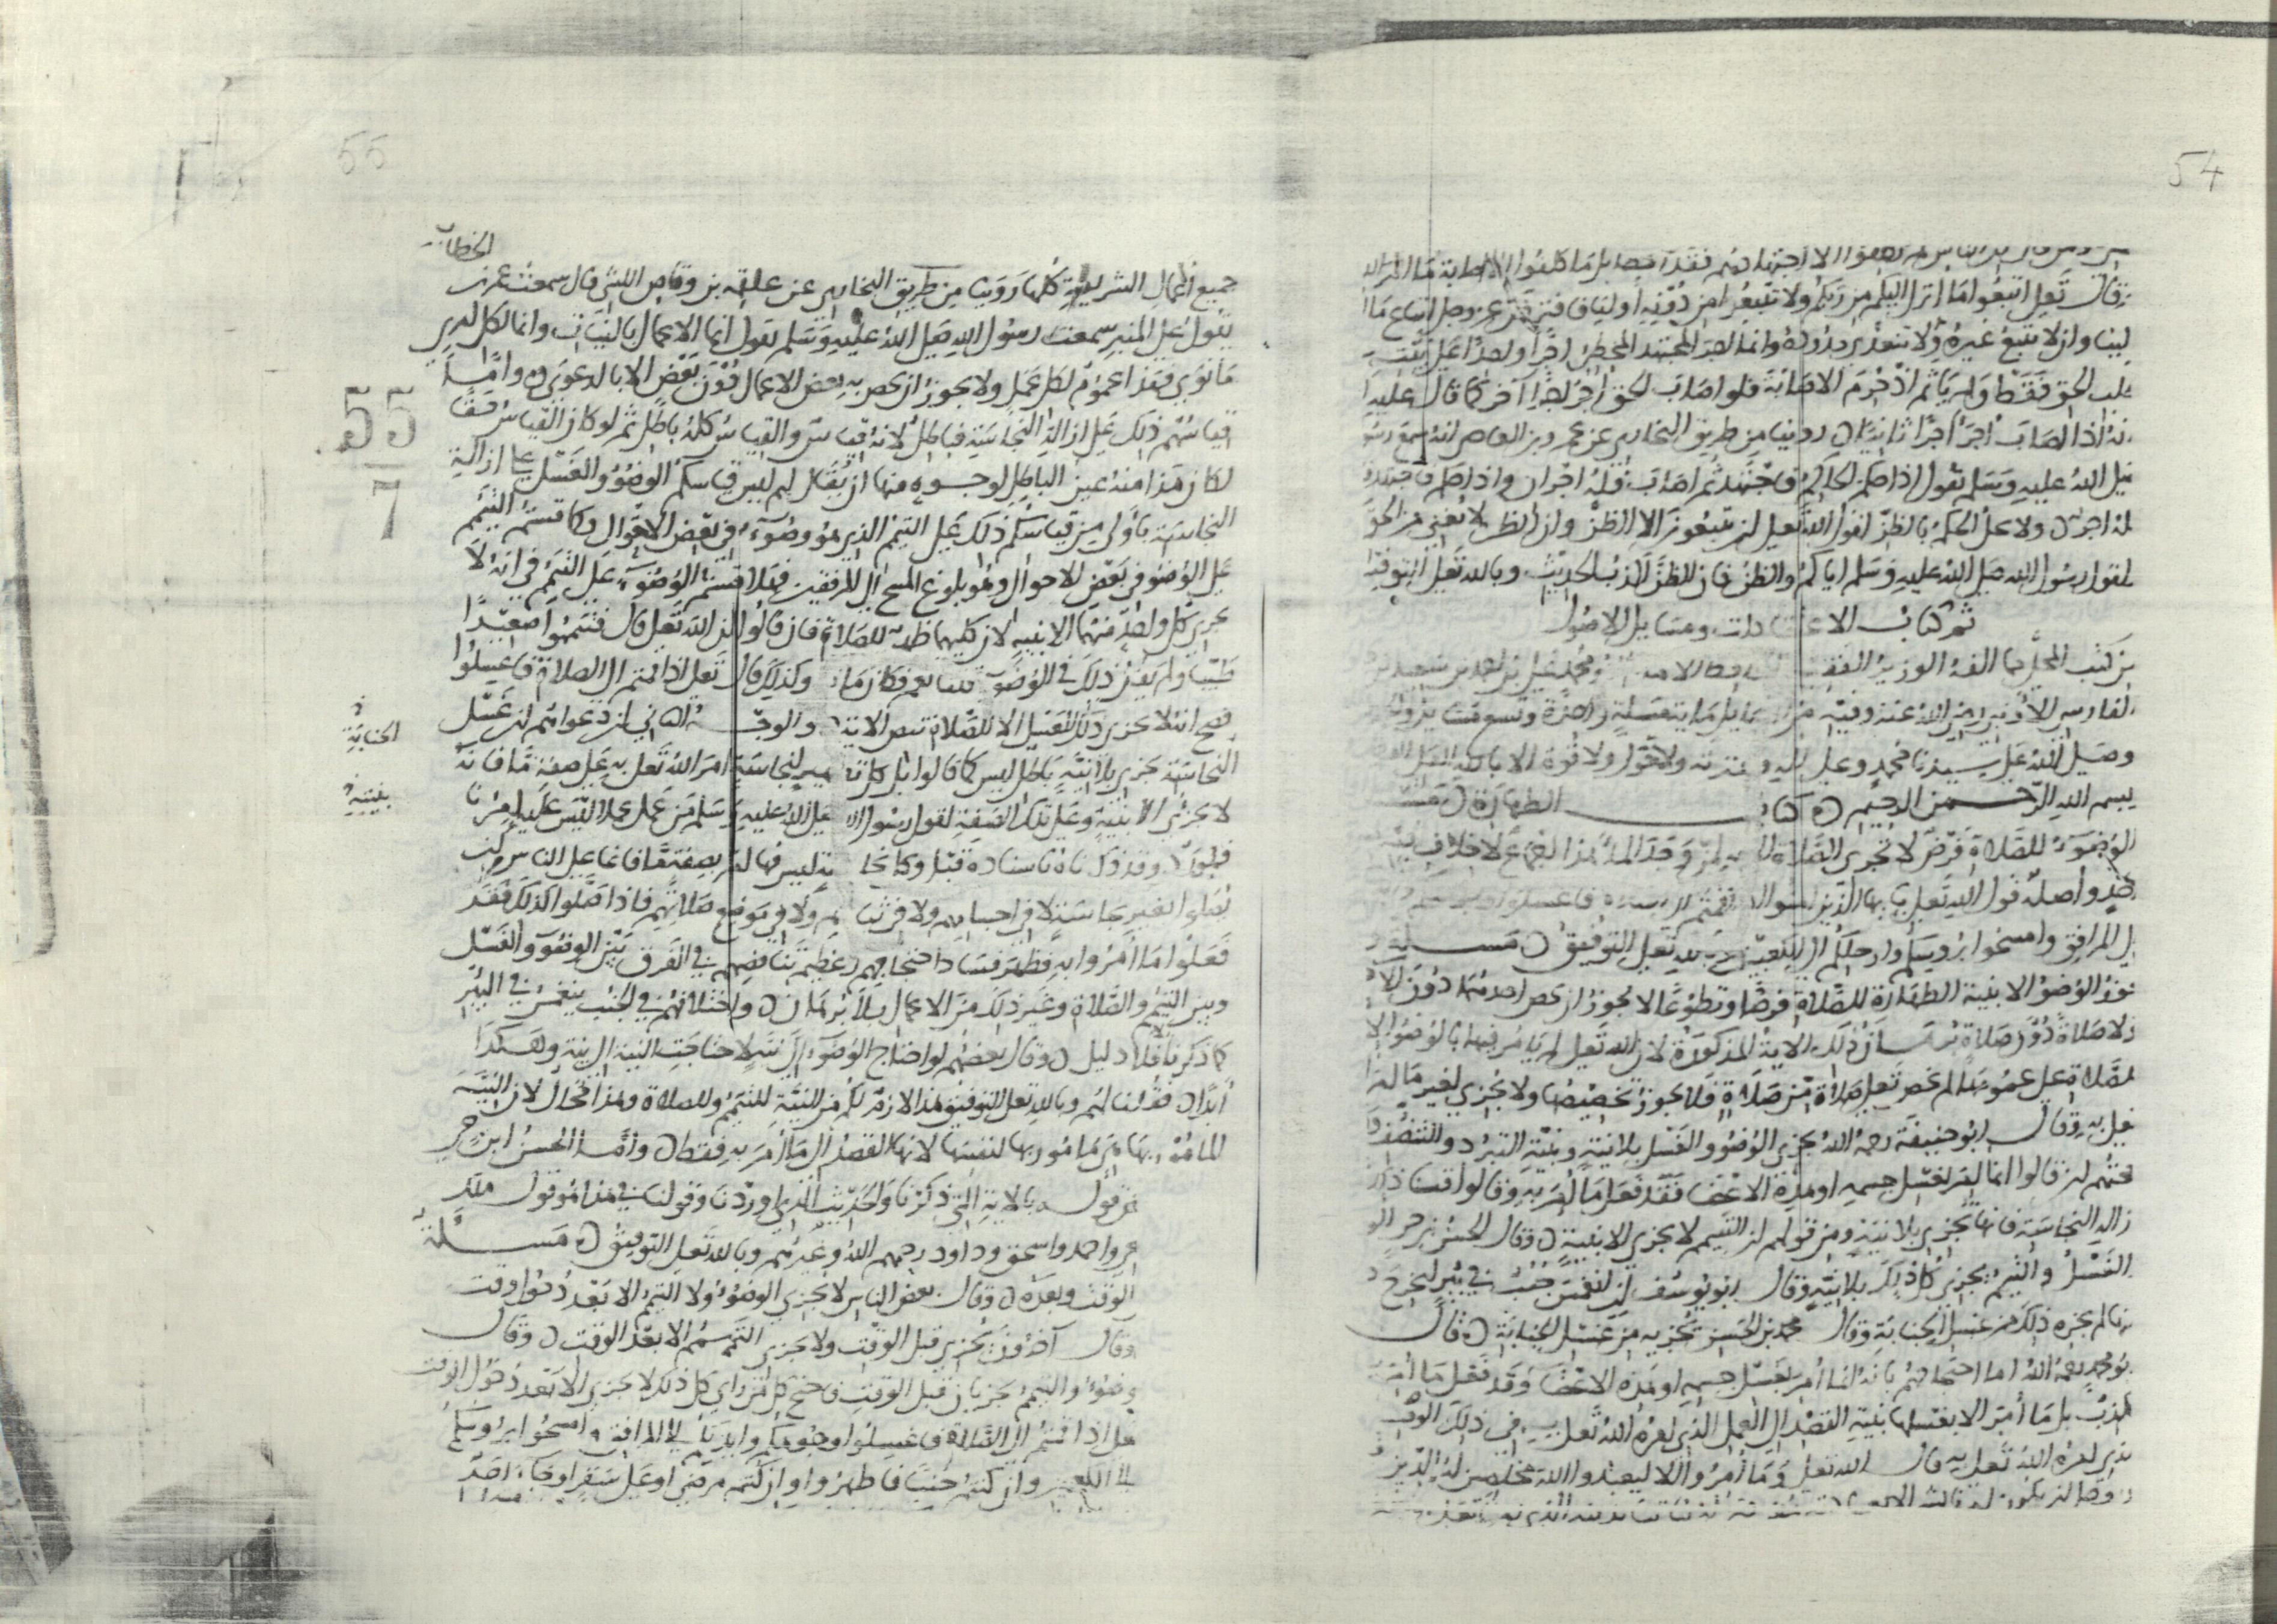 54
قال تعلى اتبعوا ما انزل اليكم من ربكم ولا تتبعوا من دونه اولياء فافترض عز وجل اتباع ما ا
لينا وان لا نتبع غيره ولا نتعدى حدوده وانما لاحد المجتهد المخطئ اجرا واحدا على نيته
طلب الحق فقط ولم ياثم اذ حرم الاصابة فلو اصاب الحق اجر اجرا اخر كما قال عليه ا
انه اذا اصاب اجر اجرا ثانيا روينا من طريق البخاري عن عمرو بن العاص انه سمع رسو
صلى الله عليه وسلم يقول اذا حكم الحاكم فاجتهد ثم اصاب فله اجران واذا حكم فاجتهد
له اجر ولا يحل الحكم بالظن لقول الله تعلى ان يتبعون الا الظن وان الظن لا يغني من الحق
لقول رسول الله صلى الله عليه وسلم اياكم والظن فان الظن اكذب الحديث وبالله تعلى التوفيق
تم كتاب الاعتقادات ومسايل الاصول
من كتب المحلى مما الفه الوزير الفقيه محمد علي بن احمد بن سعيد
الفارسي رضي الله عنه وفيه من المسايل ماية مسلة واحدة وتسعون
وصلى الله على سيدنا محمد وعلى اله وعترته ولا حول ولا قوة الا بالله العلي
بسم الله الرحمن الرحيم كتاب الطهارة
الوضوء للصلاة فرض لا تجزي الصلاة الا به لمن وجد الماء هذا اجماع لا خلاف فيه
واصله قول الله تعلى يا ايها الذين امنوا اذا قمتم الى الصلاة فاغسلوا وجوهكم
الى المرافق وامسحوا برؤسكم وارجلكم الى الكعبين وبالله تعلى التوفيق مسلة
يجوز الوضو الا بنية الطهارة للصلاة فرضا وتطوعا لا يجوز ان يخص احدهما دون
ولا صلاة دون صلاة برهان ذلك الاية المذكورة لان الله تعلى لم يامر فيها بالوضو الا
للصلاة على عمومها لم يخص تعلى صلاة من صلاة فلا يجوز تخصيصها ولا يجزي لغير ما امر
تعلى به وقال ابو حنيفة رحمه الله يجزي الوضو والغسل بلا نية وبنية التبرد والتنظف
حجتهم ان قالوا انما امر بغسل جسمه او هذه الاعضا فقد فعل ما امر به وقالوا قسنا ذلك
ازالة النجاسة فانها تجزي بلا نية ومن قولهم ان التيمم لا يجزي الا بنية وقال الحسن بن حي
الغسل والتيمم يجزي كل ذلك بلا نية وقال ابو يوسف ان انغمس جنب في بير ليخرج
منها لم يجزه ذلك من غسل الجنابة وقال محمد بن الحسن يجزيه من غسل الجنابة قال
بو محمد رحمه الله اما احتجاجهم بانه انما امر بغسل جسمه او هذه الاعضا وقد فعل ما امر
كذب بل ما امر الا بغسلها بنية القصد الى العمل الذي امره الله تعلى به في ذلك الوقت
الذي امره الله تعلى به قال الله تعلى وما امروا الا ليعبدوا الله مخلصين له الدين
55
جميع اعمال الشريعة كلها روينا من طريق البخاري عن علقمة بن وقاص الليثي قال سمعت عمر بن
الخطاب
يقول على المنبر سمعت رسول الله صلى الله عليه وسلم يقول انما الاعمال بالنيات وانما لكل امرئ
ما نوى فهذا عموم لكل عمل ولا يجوز ان يخص به بعض الاعمال دون بعض الا بالدعوى واما
قياسهم ذلك على ازالة النجاسة فباطل لانه قياس والقياس كله باطل ثم لو كان القياس حقا
لكان هذا منه عين الباطل لوجوه منها ان يقال لهم ليس قياسكم الوضو والغسل على ازالة
النجاسة باولى من قياسكم ذلك على التيمم الذي هو وضوء في بعض الاحوال وكما قستم التيمم
على الوضو في بعض الاحوال وهو بلوغ المسح الى المرفقين فهلا قستم الوضوء على التيمم في انه لا
يجزي كل واحد منهما الا بنية لان كليهما طهر للصلاة فان قالوا ان الله تعلى قال فتيمموا صعيدا
طيبا ولم يقل ذلك في الوضوء قلنا نعم فكان ماذا وكذلك قال تعلى اذا قمتم الى الصلاة فاغسلوا
فصح انه لا يجزي ذلك الغسل الا للصلاة بنص الاية والوجه الثاني ان دعواهم ان غسل
الجنابة
النجاسة يجزي بلا نية باطل ليس كما قالوا بل كل تطهير لنجاسة امر الله تعلى به على صفة ما فانه
لا يجزئ الا بنية وعلى تلك الصفة لقول رسول الله صلى الله عليه وسلم من عمل عملا ليس عليه امرنا
فهو رد وقد ذكرناه باسناده قبل وكل نجاسة ليس فيها امر بصفة ما فانما على الناس
يصلوا بغير نجاسة لا في اجسامهم ولا في ثيابهم ولا في موضع صلاتهم فاذا صلوا كذلك فقد
فعلوا ما امروا به فظهر فساد احتجاجهم وعظيم تناقضهم في الفرق بين الوضوء والغسل
وبين التيمم والصلاة وغير ذلك من الاعمال بلا برهان واختلافهم في الجنب ينغمس في البئر
كما ذكرنا بلا دليل وقال بعضهم لو احتاج الوضوء الى نية لاحتاجت النية الى نية وهكذا
ابدا فقلنا لهم وبالله تعلى التوفيق هذا لازم لكم في النية للتيمم وللصلاة وهذا محال لان النية
المامور بها هي مامور بها لنفسها لانها القصد الى ما امر به فقط واما الحسن ابن حي
فقوله بالاية التي ذكرنا والحديث الذي اوردنا وقولنا في هذا هو قول ملك
واحمد واسحق وداود رحمهم الله وغيرهم وبالله تعلى التوفيق مسلة
الوقت وبعده وقال بعض الناس لا يجزي الوضوء ولا التيمم الا بعد دخول وقت
وقال آخرون يجزي قبل الوقت ولا يجزي التيمم الا بعد الوقت وقال
وضوء والتيمم يجزيان قبل الوقت فاحتج كل من راى كل ذلك لا يجزي الا بعد دخول الوقت
تعلى اذا قمتم الى الصلاة فاغسلوا وجوهكم وايديكم الى المرافق وامسحوا برؤسكم
الى الكعبين وان كنتم جنبا فاطهروا وان كنتم مرضى او على سفر او جاء احد
55
7